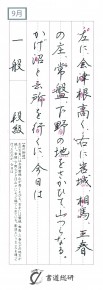 9月
左に会津根高く右に岩城、相馬、三春
の庄、常盤下野の地をさかひて山つらなる。
かげ沼と云所を行くに今日は
一般 段級
書道総研